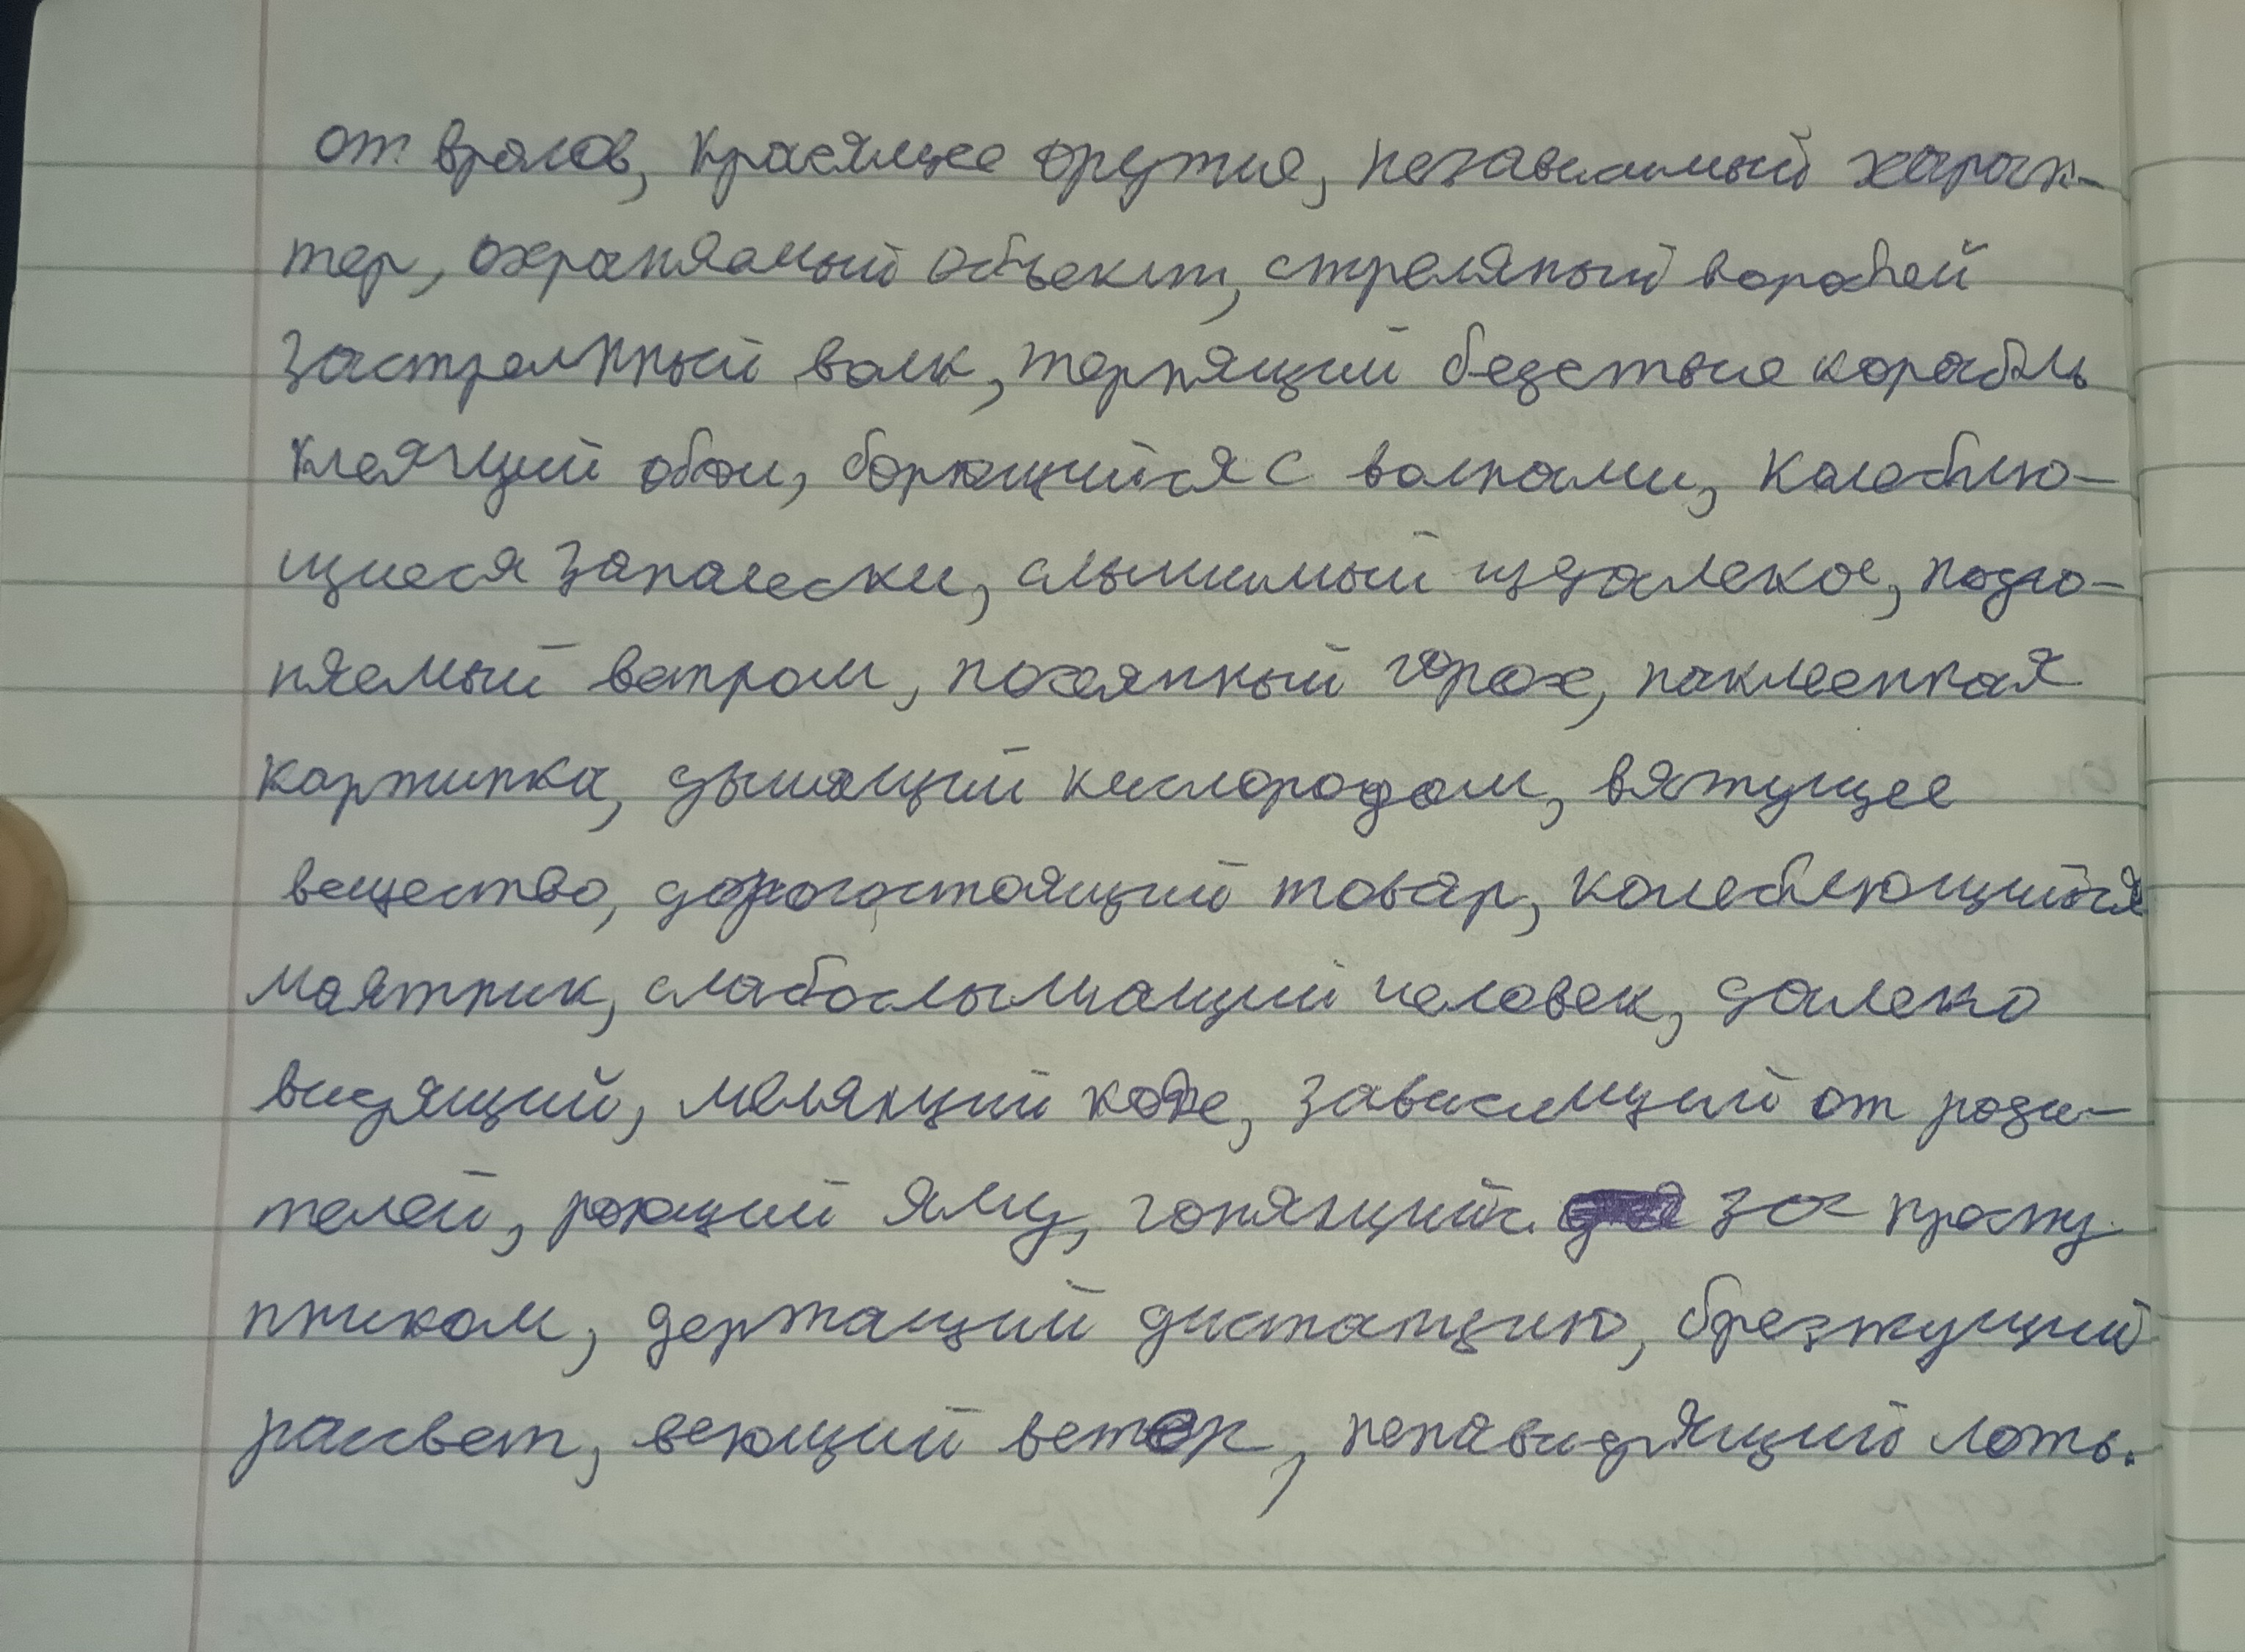 от врагов, красящее оружие, независимый харак-
тер, охраняемый объект, стреляный воробей
застреленный волк, терпящий бедствие корабль
клеящий обои, борющийся с волнами, колеблю-
щиеся занавески, слышимый издалека, подго-
няемый ветром, посеянный горох, наклеенная
картинка, дышащий кислородом, вяжущее
вещество, дорогостоящий товар, колеблющийся
маятник, слабослышащий человек, далеко
видящий, мелящий кофе, зависящий от роди-
телей, роющий яму, гонящийся за престу
пником, держащий дистанцию, брезжущий
рассвет, веющий ветер, ненавидящий ложь.